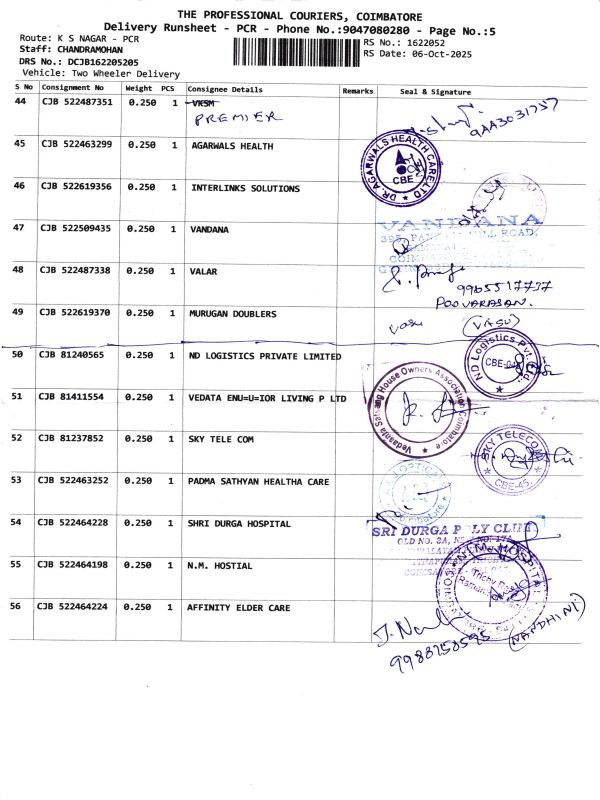 THE PROFESSIONAL COURIERS, COIMBATORE
Delivery Runsheet - PCR - Phone No.:9047080280 - Page No.:5
Route: K S NAGAR - PCR
Staff: CHANDRAMOHAN
DRS No.: DCJB162205205
Vehicle: Two Wheeler Delivery
RS No.: 1622052
RS Date: 06-Oct-2025
S No Consignment No Weight PCS Consignee Details Remarks Seal & Signature
44 CJB 522487351 0.250 1 VKSM
PREMIER
45 CJB 522463299 0.250 1 AGARWALS HEALTH
DR. AGARWALS HEALTH CARE LTD
CBE
46 CJB 522619356 0.250 1 INTERLINKS SOLUTIONS
47 CJB 522509435 0.250 1 VANDANA
VANDANA
48 CJB 522487338 0.250 1 VALAR
9965517777
POOVARASAN.
49 CJB 522619370 0.250 1 MURUGAN DOUBLERS
vasu (VASU)
50 CJB 81240565 0.250 1 ND LOGISTICS PRIVATE LIMITED
ND Logistics Pvt. Ltd.
51 CJB 81411554 0.250 1 VEDATA ENU=U=IOR LIVING P LTD
House Owners Association
Coimbatore
52 CJB 81237852 0.250 1 SKY TELE COM
SKY TELECOM
CBE-45.
53 CJB 522463252 0.250 1 PADMA SATHYAN HEALTHA CARE
54 CJB 522464228 0.250 1 SHRI DURGA HOSPITAL
SRI DURGA POLY CLINIC
55 CJB 522464198 0.250 1 N.M. HOSTIAL
N.M. HOSPITAL
Trichy Road
56 CJB 522464224 0.250 1 AFFINITY ELDER CARE
9988758595 (NANDHINI)